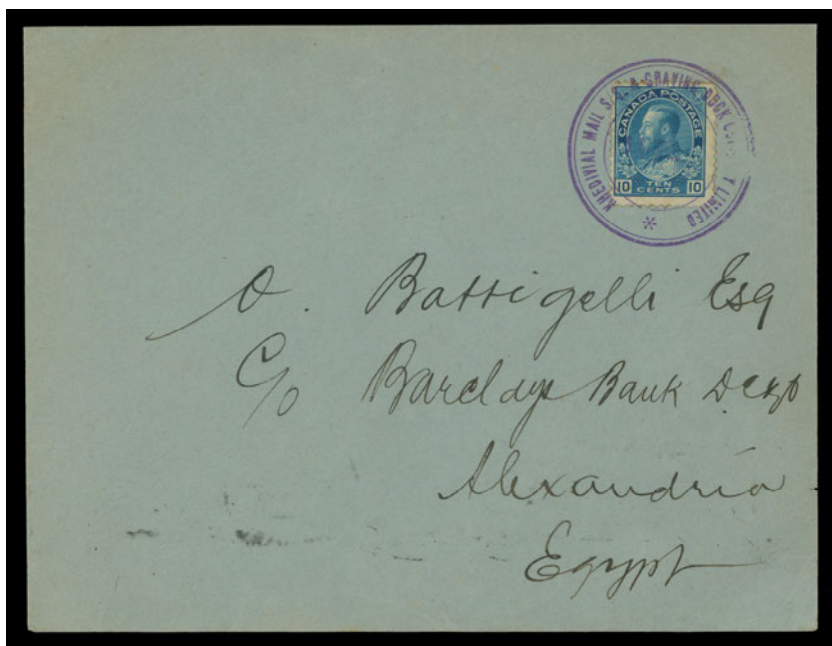 KHEDIVIAL MAIL S.S. & GRAVING DOCK COMPANY LIMITED
*
CANADA POSTAGE
10 TEN CENTS 10
O. Battigelli Esq
C/o Barclays Bank
Alexandria
Egypt